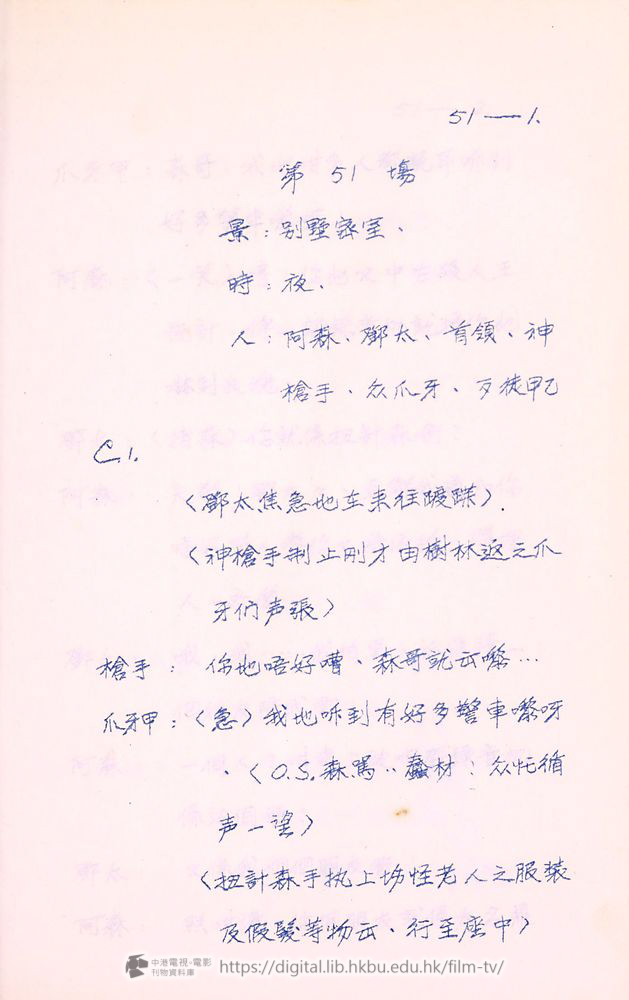 51—1.
第 51 場
景：别墅密室、
時：夜、
人：阿森、鄧太、首領、神
槍手、众爪牙、歹徒甲乙
C.1.
（鄧太焦急地在来往踱踩）.
（神槍手制止刚才由樹林返之爪
牙们声張）
槍手：你地唔好嘈、森哥就云嚟…
爪牙甲：（急）我地咻到有好多警車嚟呀
、（O.S.森罵：蠢材：众忙循
声一望）
（扭計森手执上场怪老人之服装
及假髮等物云、行至座中）
中港電視•電影
刊物資料庫
https://digital.lib.hkbu.edu.hk/film-tv/